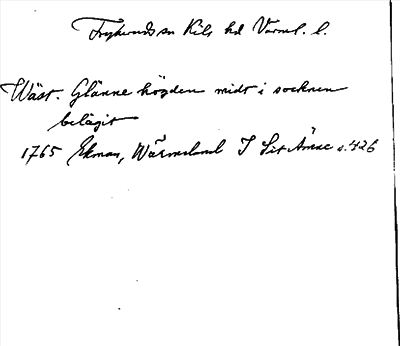 Frykeruds sn Kils hd Värml. l.
Wäst. Glänne högden midt i socknen
belägit
1765 Ekman, Wärmeland I Sit Ämne s. 426